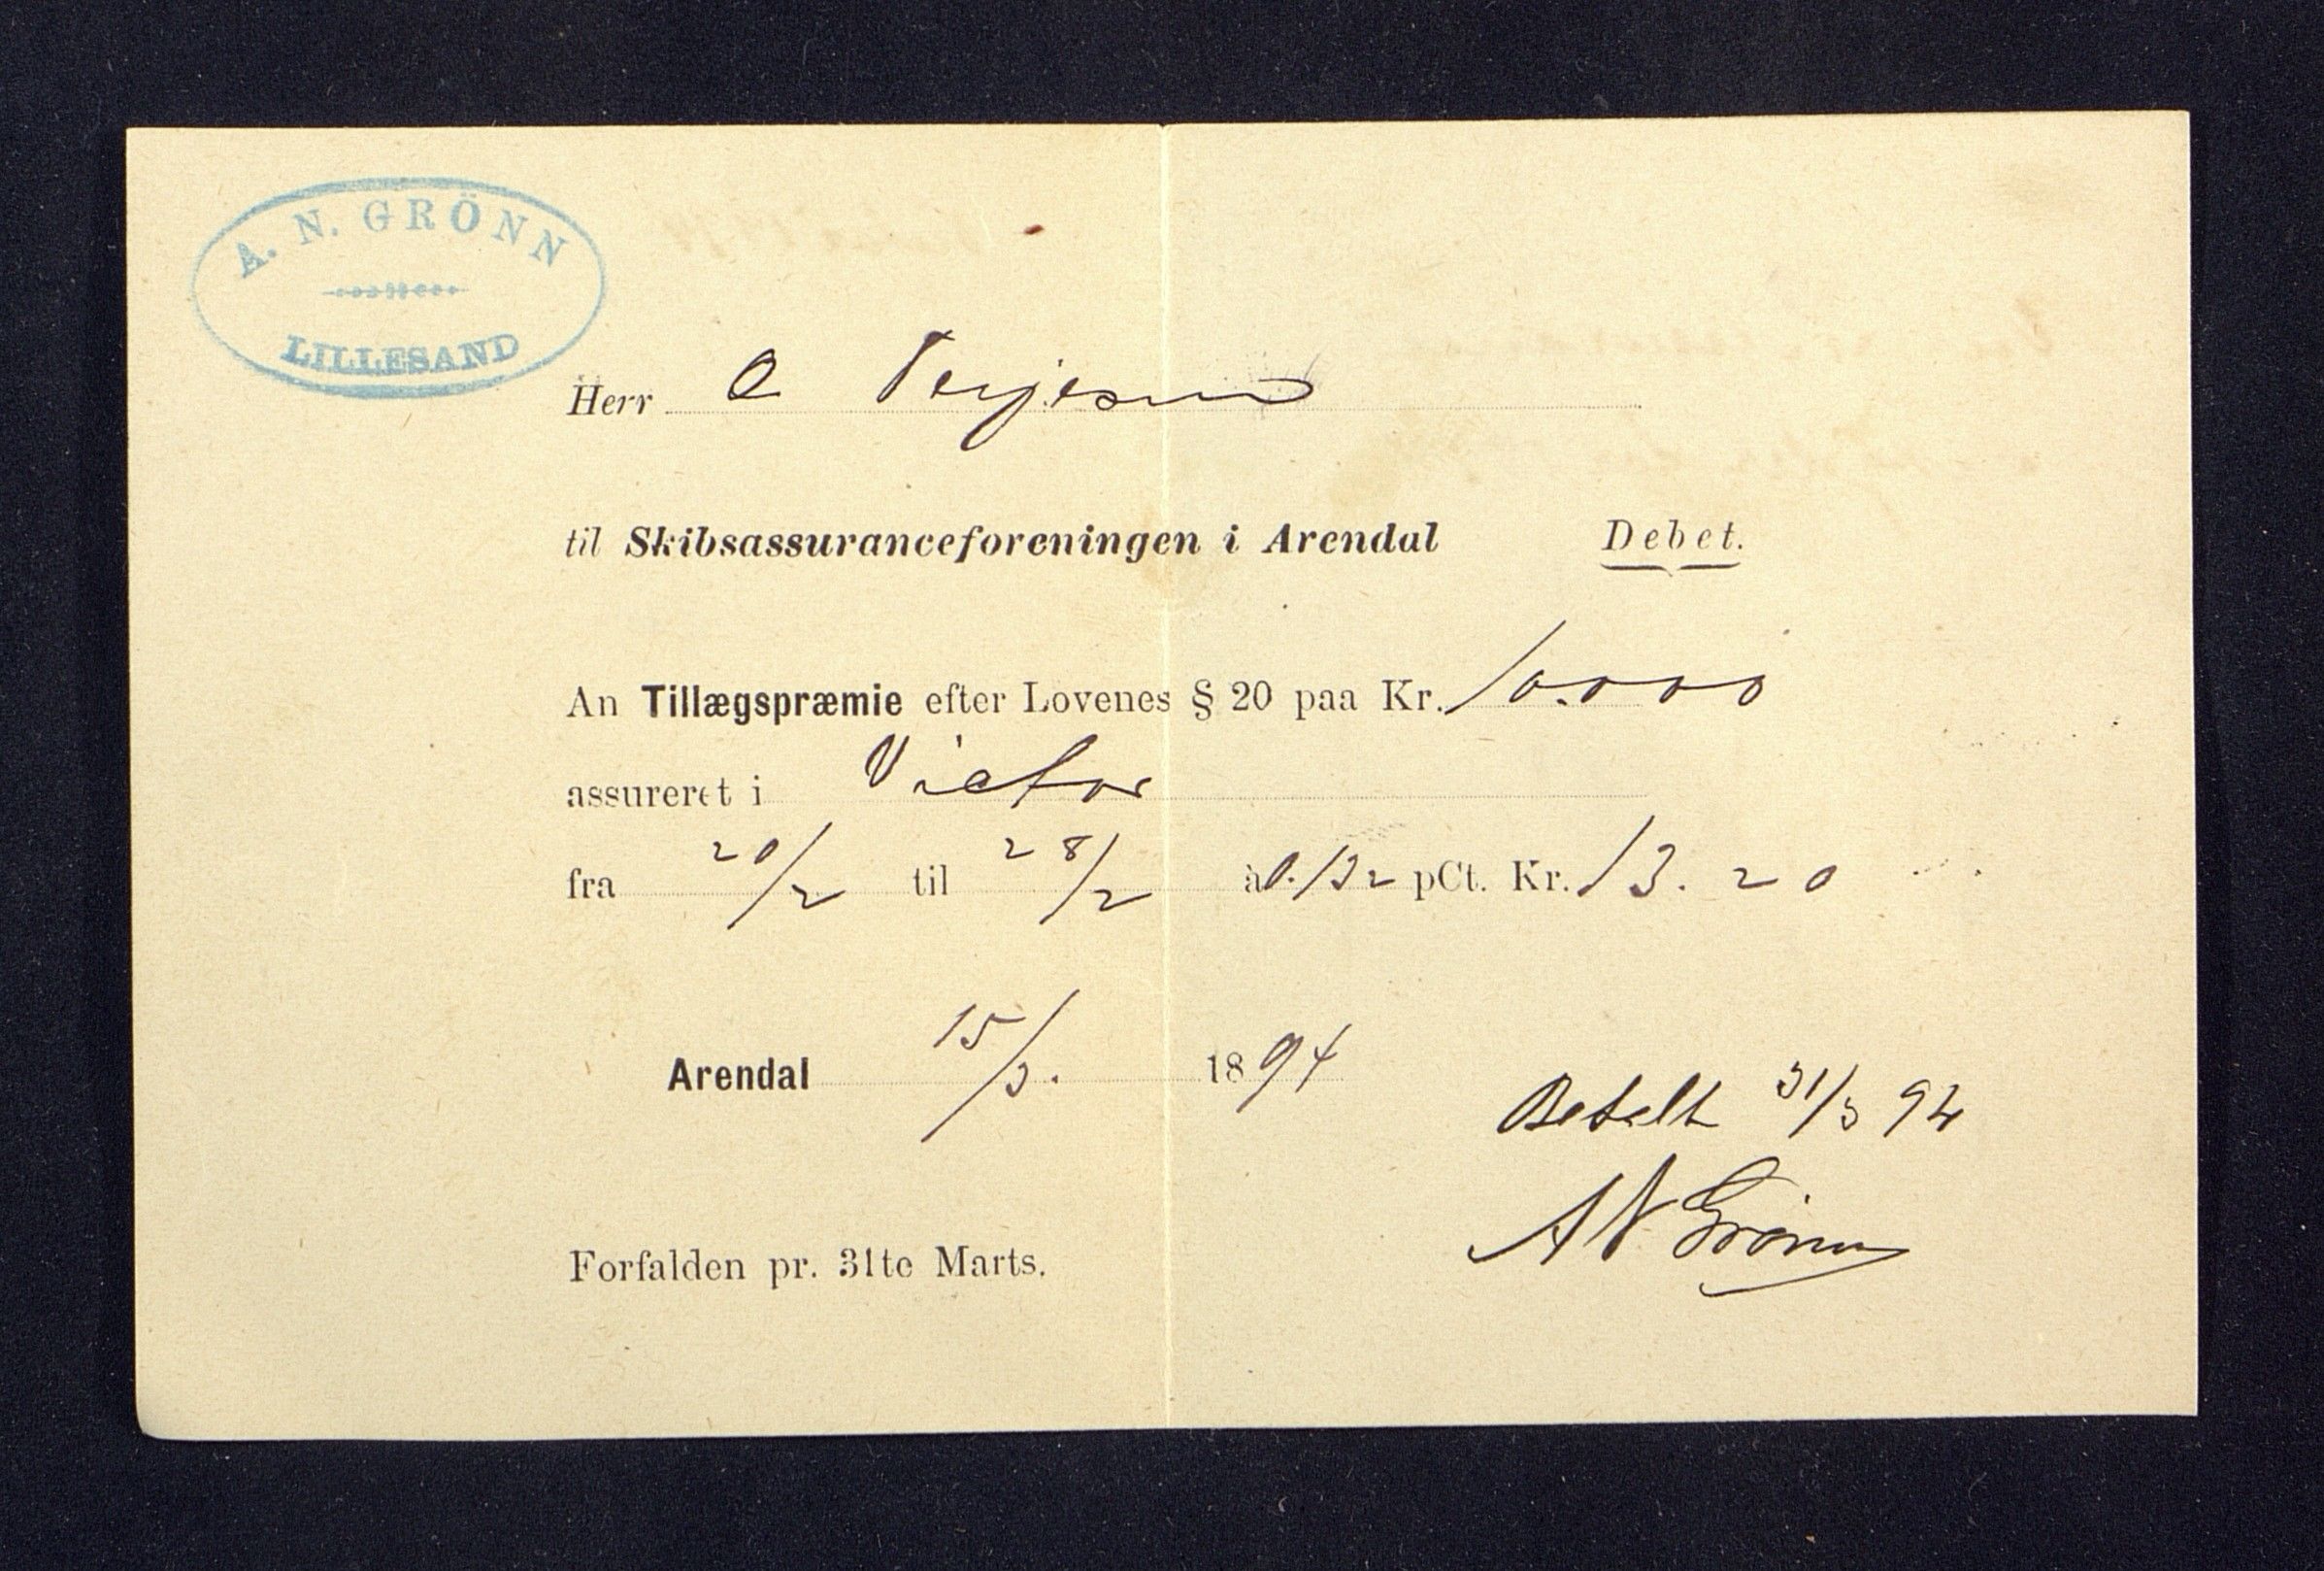 A. N. GRÖNN
LILLESAND
Herr O Terjesen
til Skibsassuranceforeningen i Arendal Debet.
An Tillægspræmie efter Lovenes § 20 paa Kr. 10.000
assureret i Victor
fra 20/2 til 28/2 à 0.132 pCt. Kr. 13.20
Arendal 15/3. 1894
Betalt 31/3 94
A N Grönn
Forfalden pr. 31te Marts.